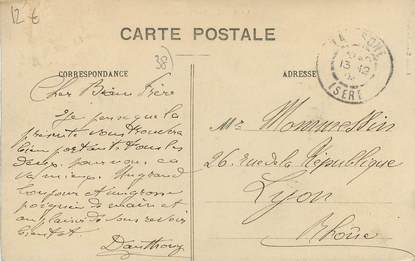 12 €
CARTE POSTALE
38)
CORRESPONDANCE
ADRESSE
LA SONE
13-12
ISERE
Cher Beau Frère
Je pense que la
présente vous trouvera
bien portant tous les
deux. pour nous ça
va mieux. Un grand
bonjour et une grosse
poignée de main et
au plaisir de vous revoir
bientôt
Mr
26 rue de la République
Lyon
Rhône